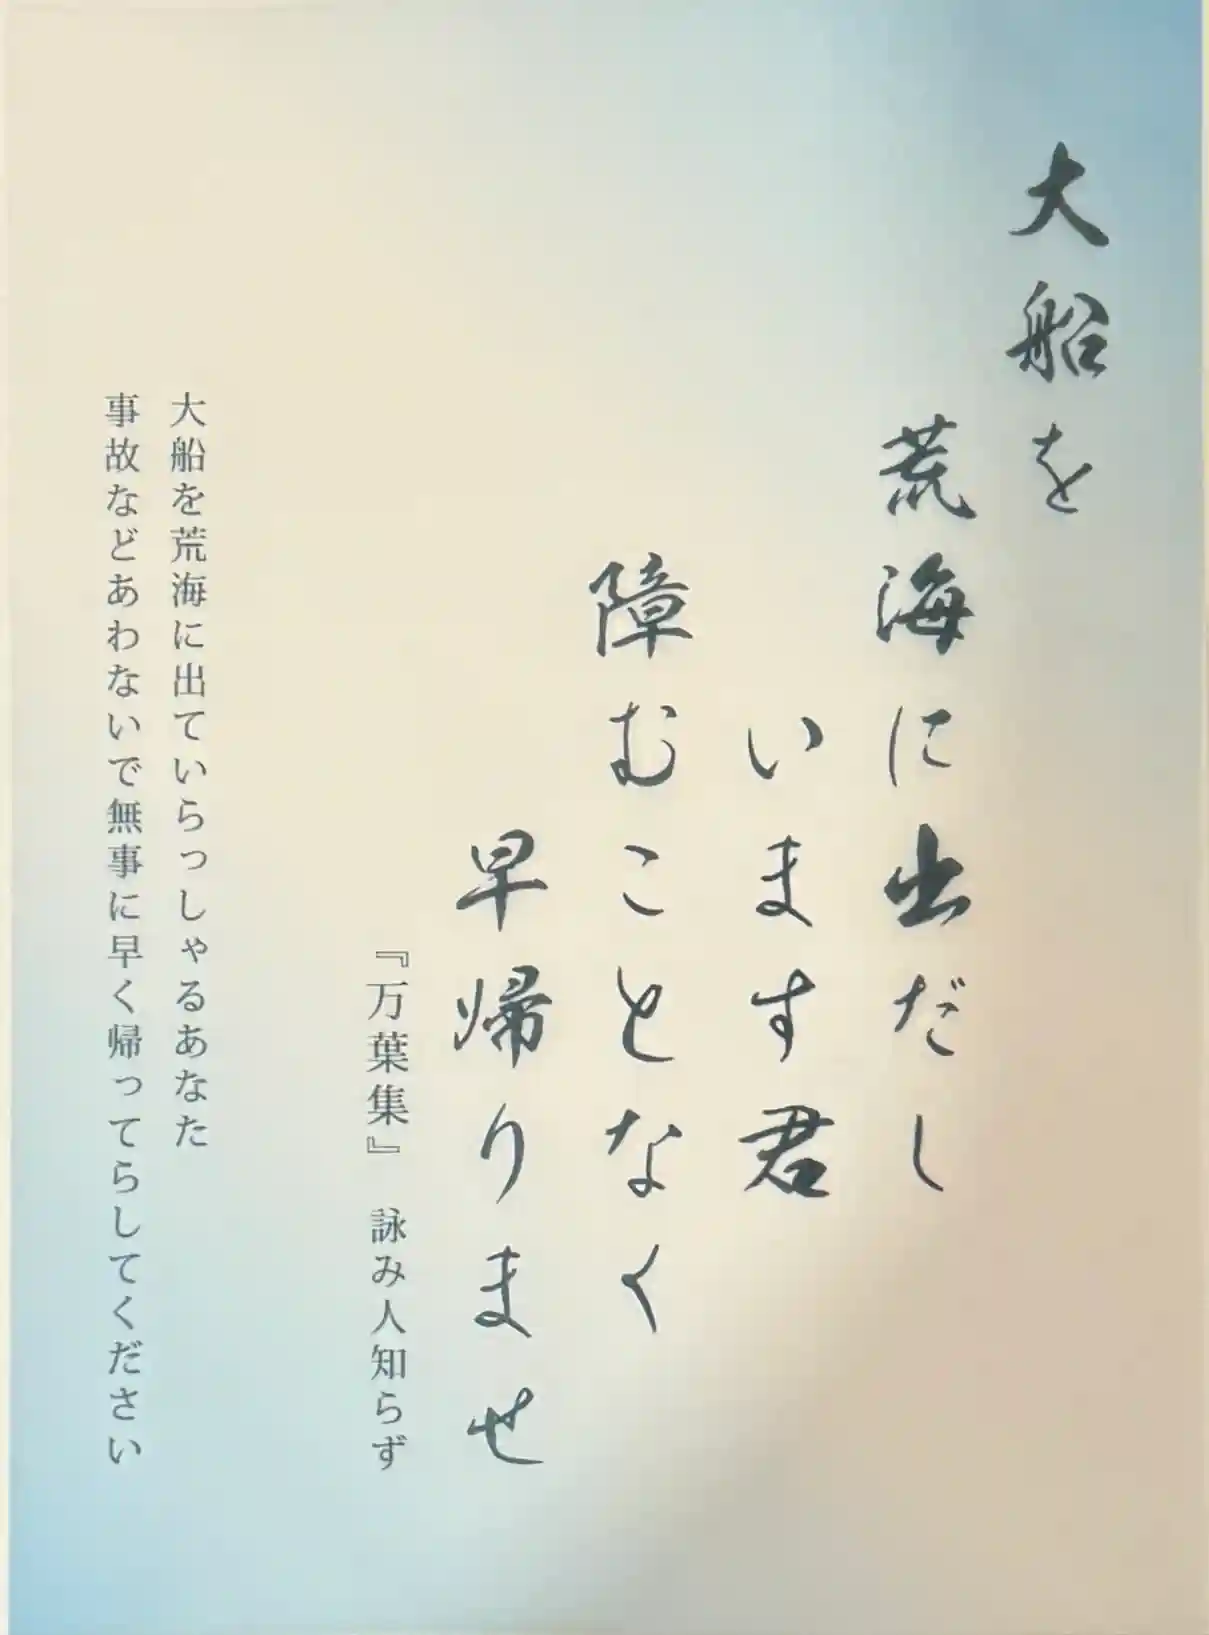 大船を
荒海に出だし
います君
障むことなく
早帰りませ
『万葉集』 詠み人知らず
大船を荒海に出ていらっしゃるあなた
事故などあわないで無事に早く帰ってらしてください